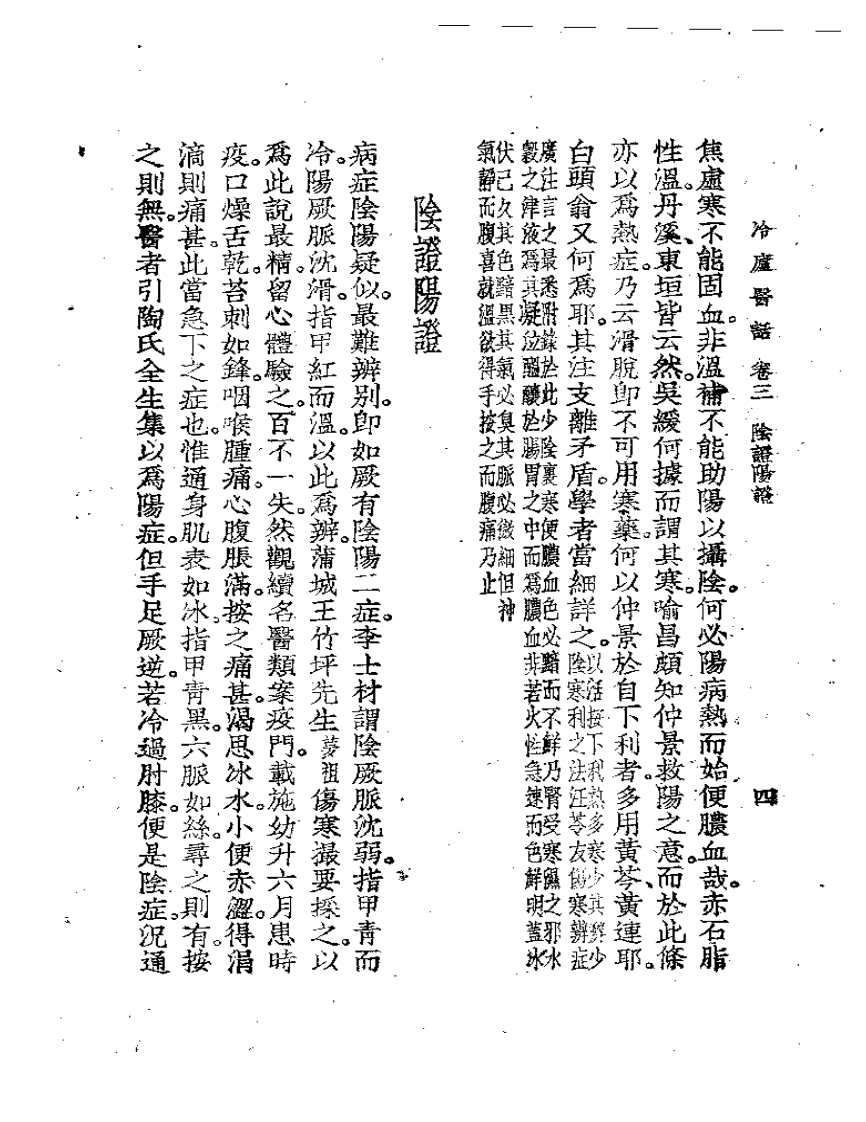 冷廬醫話 卷三 陰證陽證 四
焦虛寒不能固血。非溫補不能助陽以攝陰。何必陽病熱而始便膿血哉。赤石脂
性溫。丹溪、東垣皆云然。吳緩何據而謂其寒。喻昌頗知仲景救陽之意。而於此條
亦以為熱症。乃云滑脫卽不可用寒藥。何以仲景於自下利者。多用黃芩、黃連耶。
白頭翁又何為耶。其注支離矛盾。學者當細詳之。以注按下利熱多寒少其辨少
陰寒利之法汪苓友傷寒辨症
廣注言之最悉附錄於此少陰裏寒便膿血色必黯而不鮮乃腎受寒濕之邪水
穀之津液為其凝泣醞釀於腸胃之中而為膿血非若火性急速而色鮮明蓋冰
伏已久其色黯黑其氣必臭其脈必微細但神
氣靜而腹喜就溫欲得手按之而腹痛乃止
陰證陽證
病症陰陽疑似。最難辨別。卽如厥有陰陽二症。李士材謂陰厥脈沈弱。指甲青而
冷。陽厥脈沈滑。指甲紅而溫。以此為辨。蒲城王竹坪先生夢祖傷寒撮要採之。以
為此說最精。留心體驗之。百不一失。然觀續名醫類案疫門。載施幼升六月患時
疫。口燥舌乾。苔刺如鋒。咽喉腫痛。心腹脹滿。按之痛甚。渴思冰水。小便赤澀。得涓
滴則痛甚。此當急下之症也。惟通身肌表如冰。指甲青黑。六脈如絲。尋之則有。按
之則無。醫者引陶氏全生集以為陽症。但手足厥逆。若冷過肘膝。便是陰症。況通